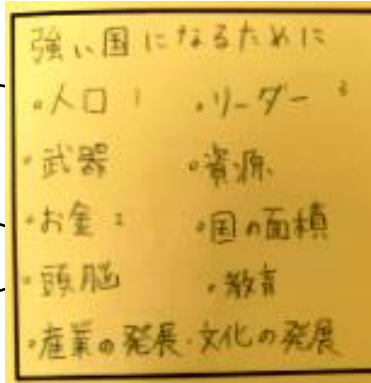 強い国になるために
・人口 1 ・リーダー 3
・武器 ・資源
・お金 2 ・国の面積
・頭脳 ・教育
・産業の発展・文化の発展